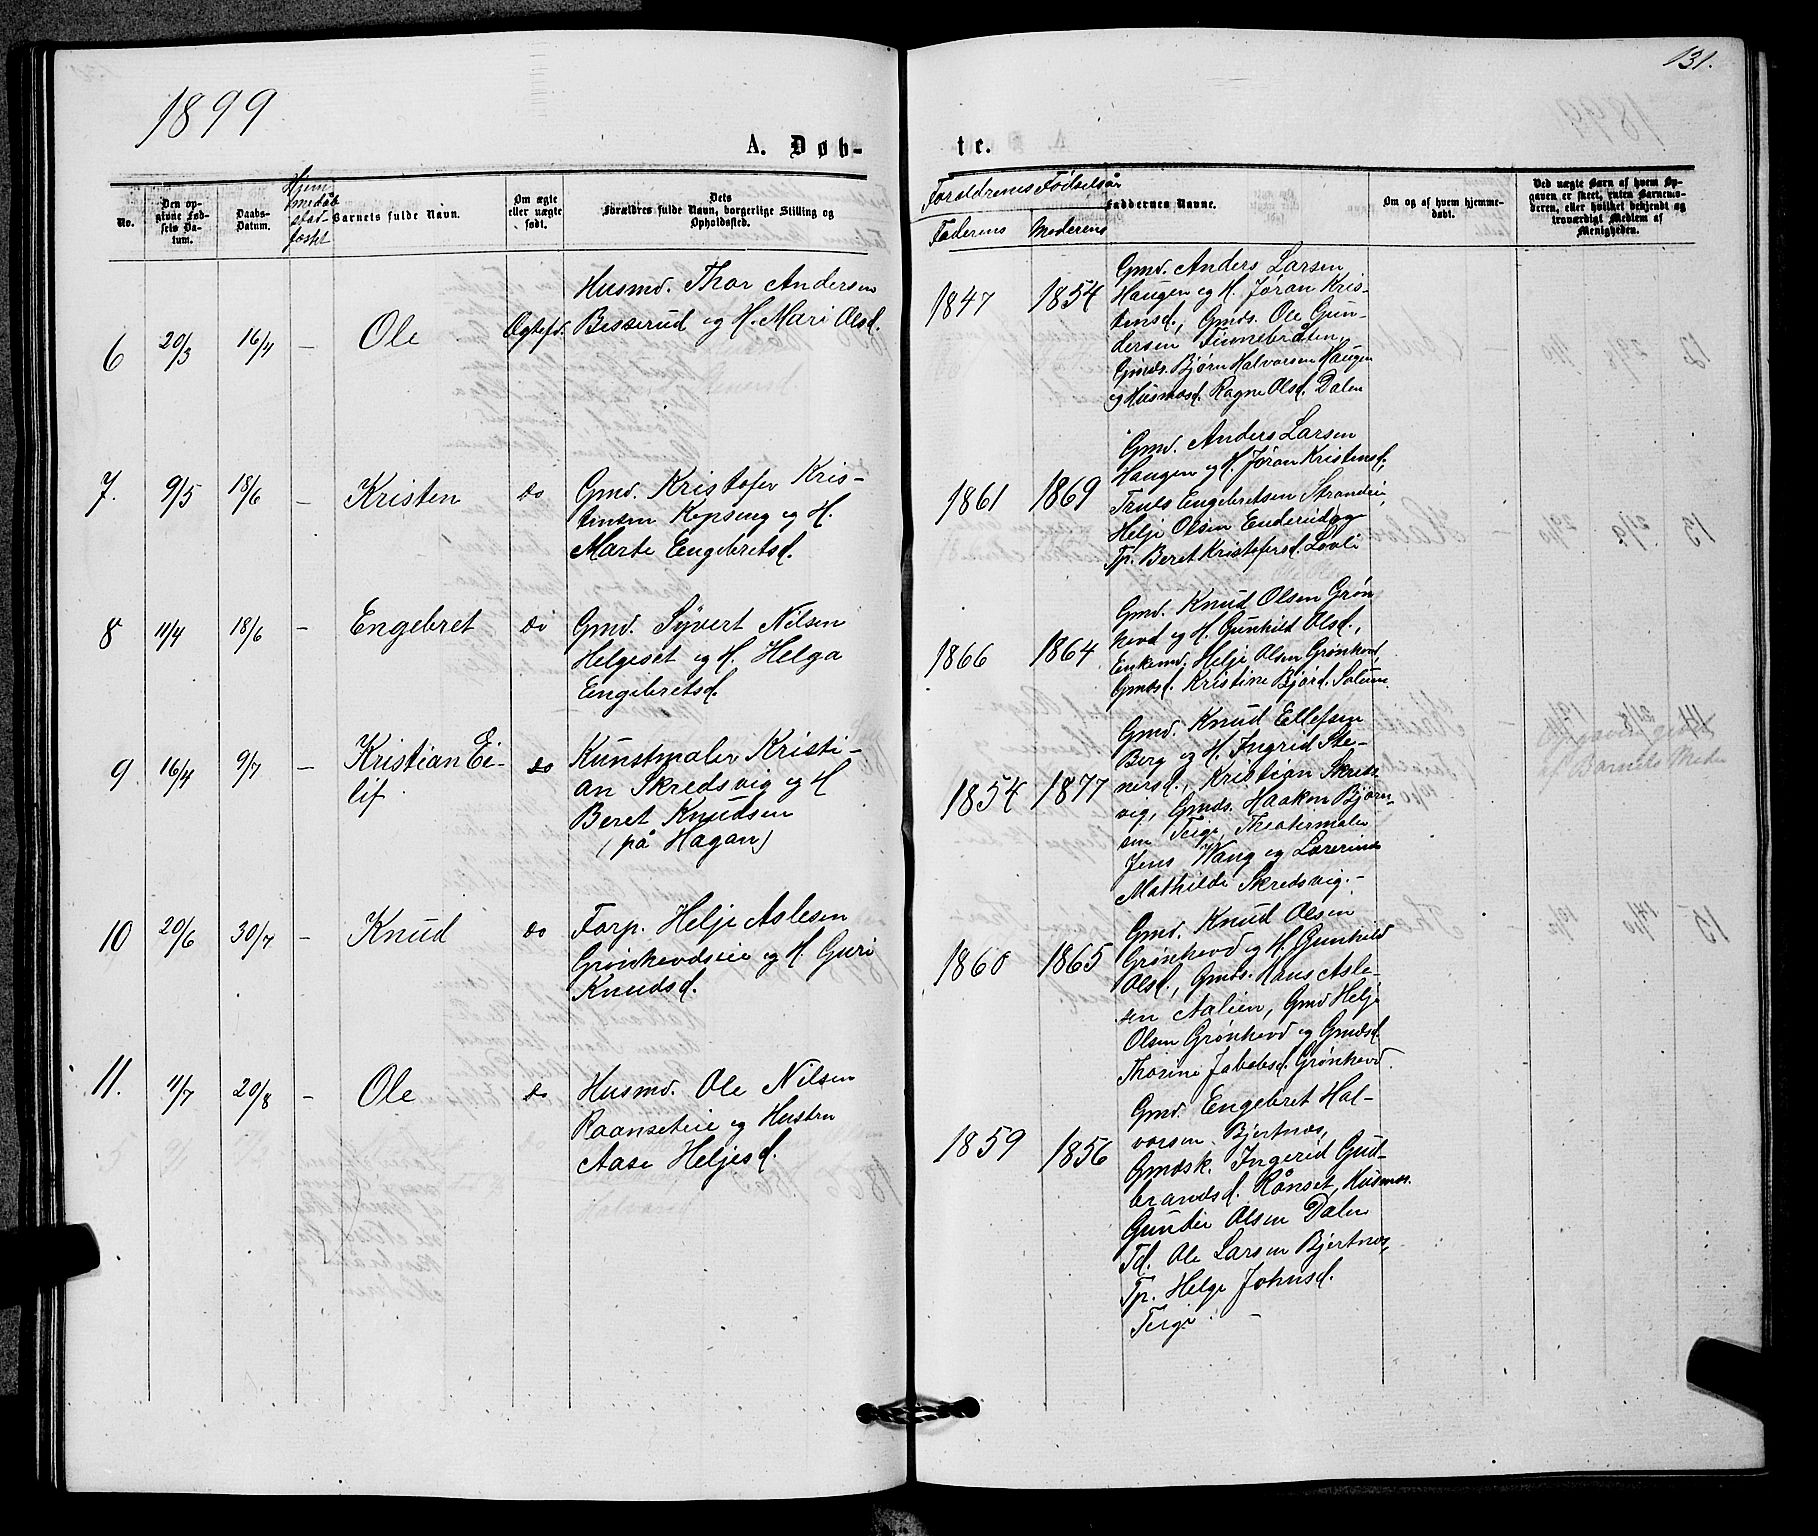 1899
131.
A. Døb-
te.
No.
Den op-
givne Fød-
sels Da-
tum.
Daabs-
Datum.
Hjem
medøb
stad-
fæstet
Barnets fulde Navn.
Om ægte
eller uægte
født.
Dets
Forældres fulde Navn, borgerlige Stilling og
Opholdssted.
Forældrenes Fødselsår
Faderens
Moderens
Faddernes Navne.
Om og af hvem hjemme-
døbt.
Ved uægte Barn af hvem Op-
gaven er skeet, enten Barnemo-
deren, eller hvilket bekjendt og
troværdigt Medlem af
Menigheden.
6
20/3
16/4
–
Ole
Ægtefd.
Husmd. Thor Andersen
Bisserud og H. Mari Olsd.
1847
1854
Gmd. Anders Larsen
Haugen og H. Jøran Kris-
tensd., Gmds. Ole Gun-
dersen Finnebråten,
Gmds. Bjørn Halvorsen Haugen
og Husmdsd. Ragne Olsd. Dalen
7.
9/5
18/6
–
Kristen
do
Gmd. Kristofer Kris-
tensen Kopseng og H.
Marte Engebretsd.
1861
1869
Gmd. Anders Larsen
Haugen og H. Jøran Kristensd.,
Truls Engebretsen Strandeie,
Helje Olsen Enderud og
Tp. Beret Kristofersd. Løvli
8
11/4
18/6
–
Engebret
do
Gmd. Syvert Nilsen
Helgeset og H. Helga
Engebretsd.
1866
1864
Gmd. Knud Olsen Grøn
hovd og H. Gunhild Olsd.,
Enkemd. Helje Olsen Grønhovd,
Gmdsd. Kristine Bjørd. Solum.
9
16/4
9/7
–
Kristian Ei-
lif.
do
Kunstmaler Kristi-
an Skredsvig og H
Beret Knudsen
(på Hagan)
1854
1877
Gmd. Knud Ellefsen
Berg og H. Ingrid Ste-
nersd., Kristian Skreds-
vig, Gmds. Haakon Bjørn-
sen Teige, Theatermaler
Jens Wang og Lærerinde
Mathilde Skredsvig.–
10
20/6
30/7
–
Knud
do
Forp. Helje Aslesen
Grønhovdseie og H. Guri
Knudsd.
1860
1865
Gmd. Knud Olsen
Grønhovd og H. Gunhild
Olsd., Gmds. Hans Asle-
sen Aalien, Gmd Helje
Olsen Grønhovd og Gmdsd
Thorine Jakobsd. Grønhovd.
11.
11/7
20/8
–
Ole
do
Husmd. Ole Nilsen
Raanseteie og Hustru
Aase Heljesd.
1859
1856
Gmd. Engebret Hal-
vorsen Bjertnæs,
Gmdsk. Ingerid Gud-
brandsd. Rånset, Husmds.
Gunder Olsen Dalen
Td. Ole Larsen Bjertnæs,
Tp. Helge Johnsd.
Teige.